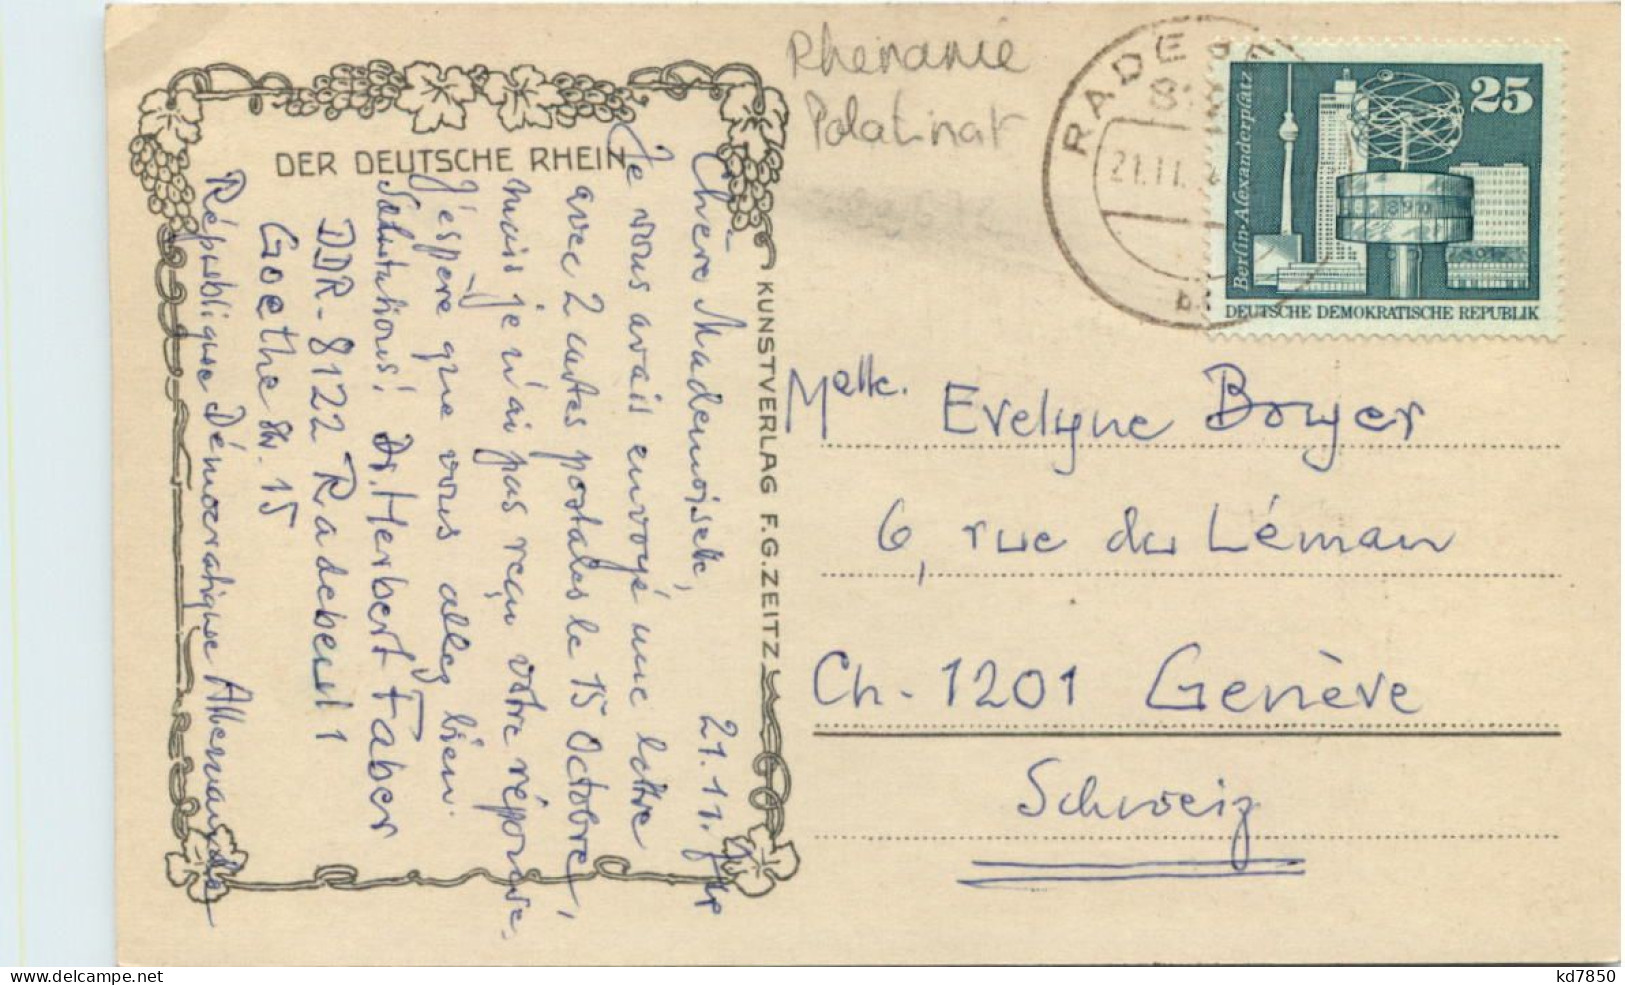 DER DEUTSCHE RHEIN
Chère Mademoiselle,
21.11.
Je vous avais envoyé une lettre
avec 2 cartes postales le 15 Octobre,
mais je n'ai pas reçu votre réponse.
J'espère que vous allez bien.
Salutations! Dr. Herbert Faber
DDR-8122 Radebeul 1
Goethe Str. 15
République Démocratique Allemande
KUNSTVERLAG F.G.ZEITZ
Rhenanie
Palatinat
RADEBEUL
21.11.
25
Berlin-Alexanderplatz
DEUTSCHE DEMOKRATISCHE REPUBLIK
Melle. Evelyne Boyer
6, rue du Léman
Ch-1201 Genève
Schweiz
delcampe.net
kd7850